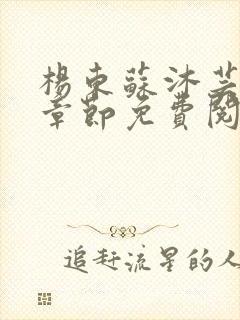 楊東蘇沐芸
章節免費閱
追赶流星的人